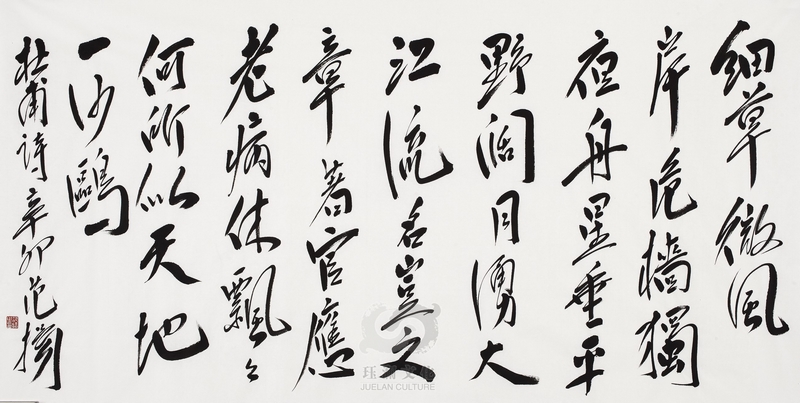 細草微風
岸危檣獨
夜舟星垂平
野闊月湧大
江流名豈文
章著官應
老病休飄々
何所似天地
一沙鷗
杜甫詩辛卯范揚
JUELAN CULTURE